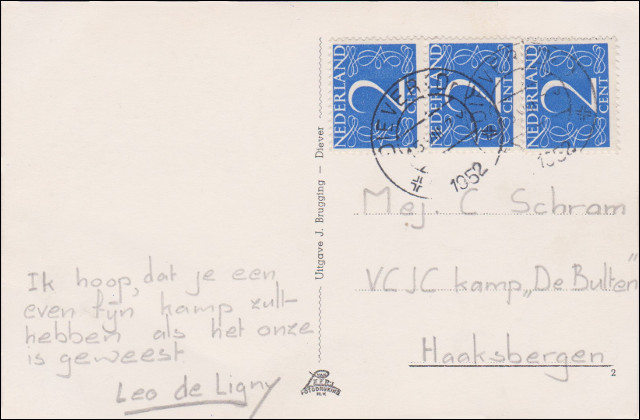 NEDERLAND 2 CENT
NEDERLAND 2 CENT
NEDERLAND 2 CENT
DIEVER
1952
1952
Uitgave J. Brugging — Diever
Mej. C Schram
VCJC kamp „De Bulten”
Haaksbergen
Ik hoop, dat je een
even fijn kamp zult
hebben als het onze
is geweest.
Leo de Ligny
2